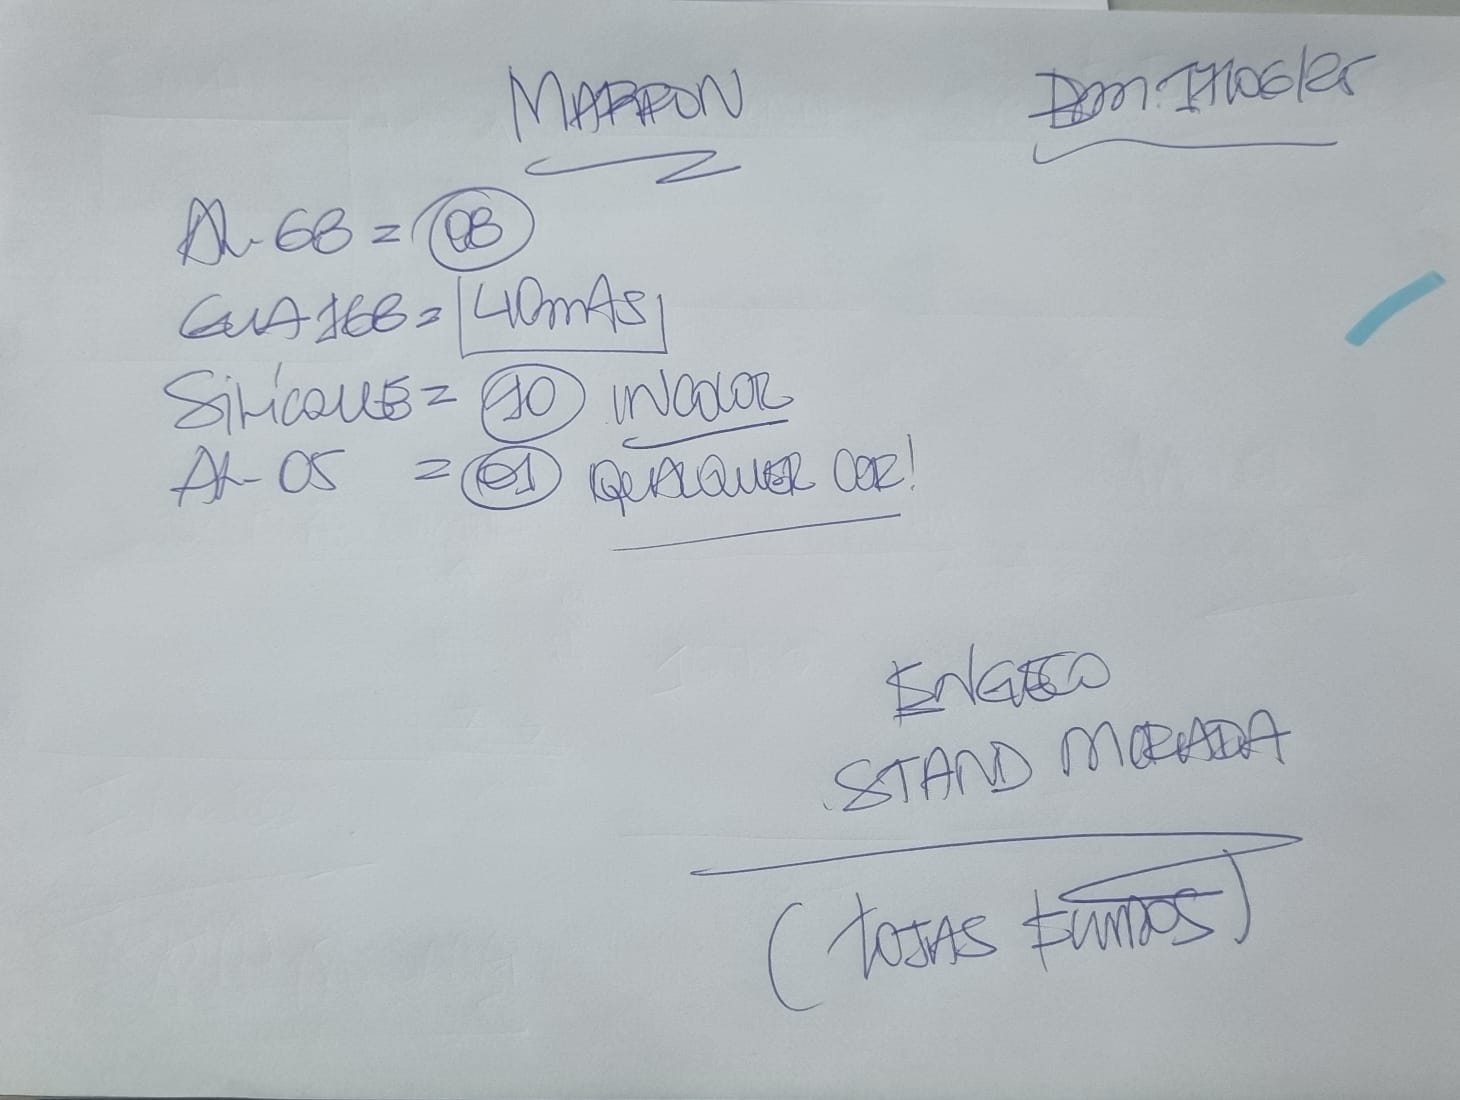 MARRON
AL-68 = 08
GUA 168 = 40mAS
SiliCOUE = 10 INCOLOR
AL-05 = 01 QUALQUER COR!
ENGECO
STAND MORADA
(LOJAS FUNDOS)